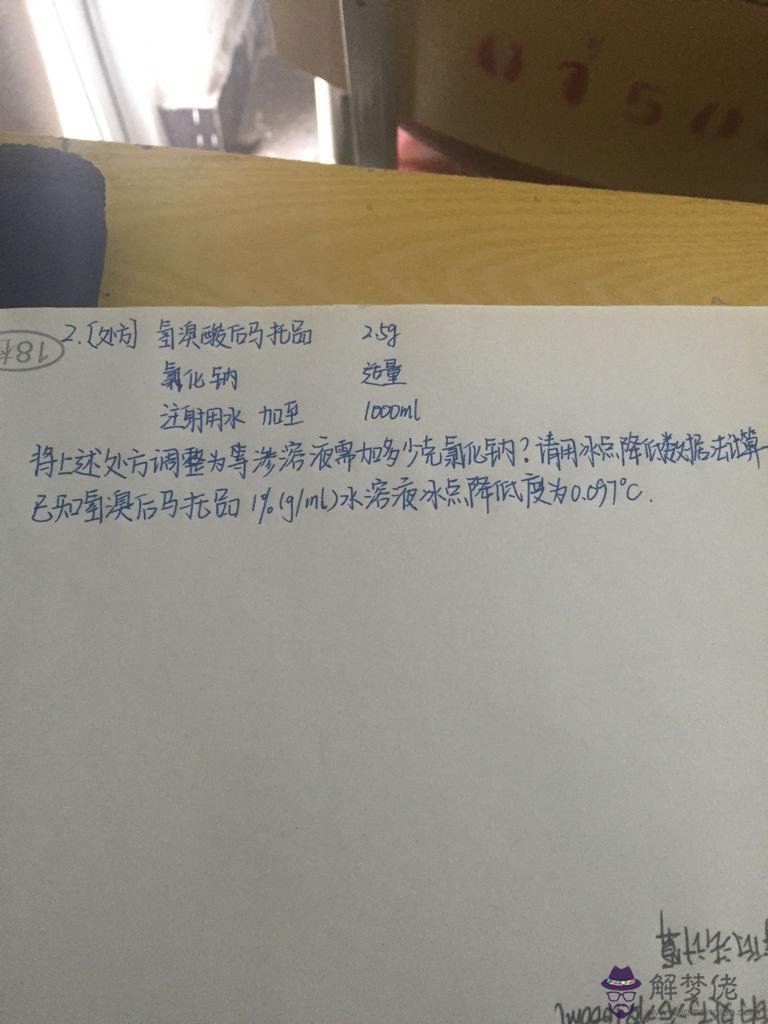 0150
2.〔处方〕 氢溴酸后马托品 2.5g
氯化钠 适量
注射用水 加至 1000ml
将上述处方调整为等渗溶液需加多少克氯化钠?请用冰点降低数据法计算
已知氢溴后马托品1%(g/ml)水溶液冰点降低度为0.097°C.
18
法计算
解梦佬